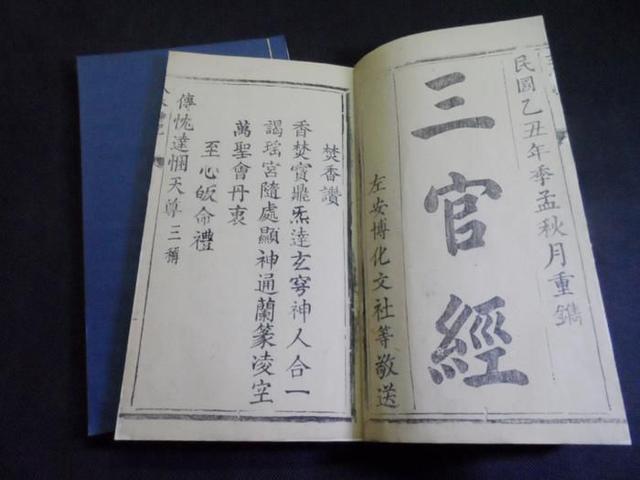 民國乙丑年季孟秋月重鐫
三官經
左安博化文社等敬送
焚香讚
香焚寶鼎炁達玄穹神人合一
謁瑤宮隨處顯神通蘭篆凌空
萬聖會丹衷
至心皈命禮
傳忱達悃天尊三稱